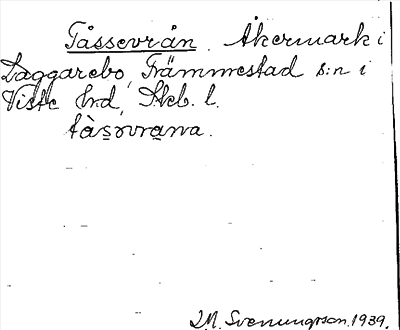 Tåssevrån. Åkermark i
Daggarebo, Främmestad s:n i
Viste hrd, Skb. l.
tàsovrana.
I.M. Svenungsson, 1939.